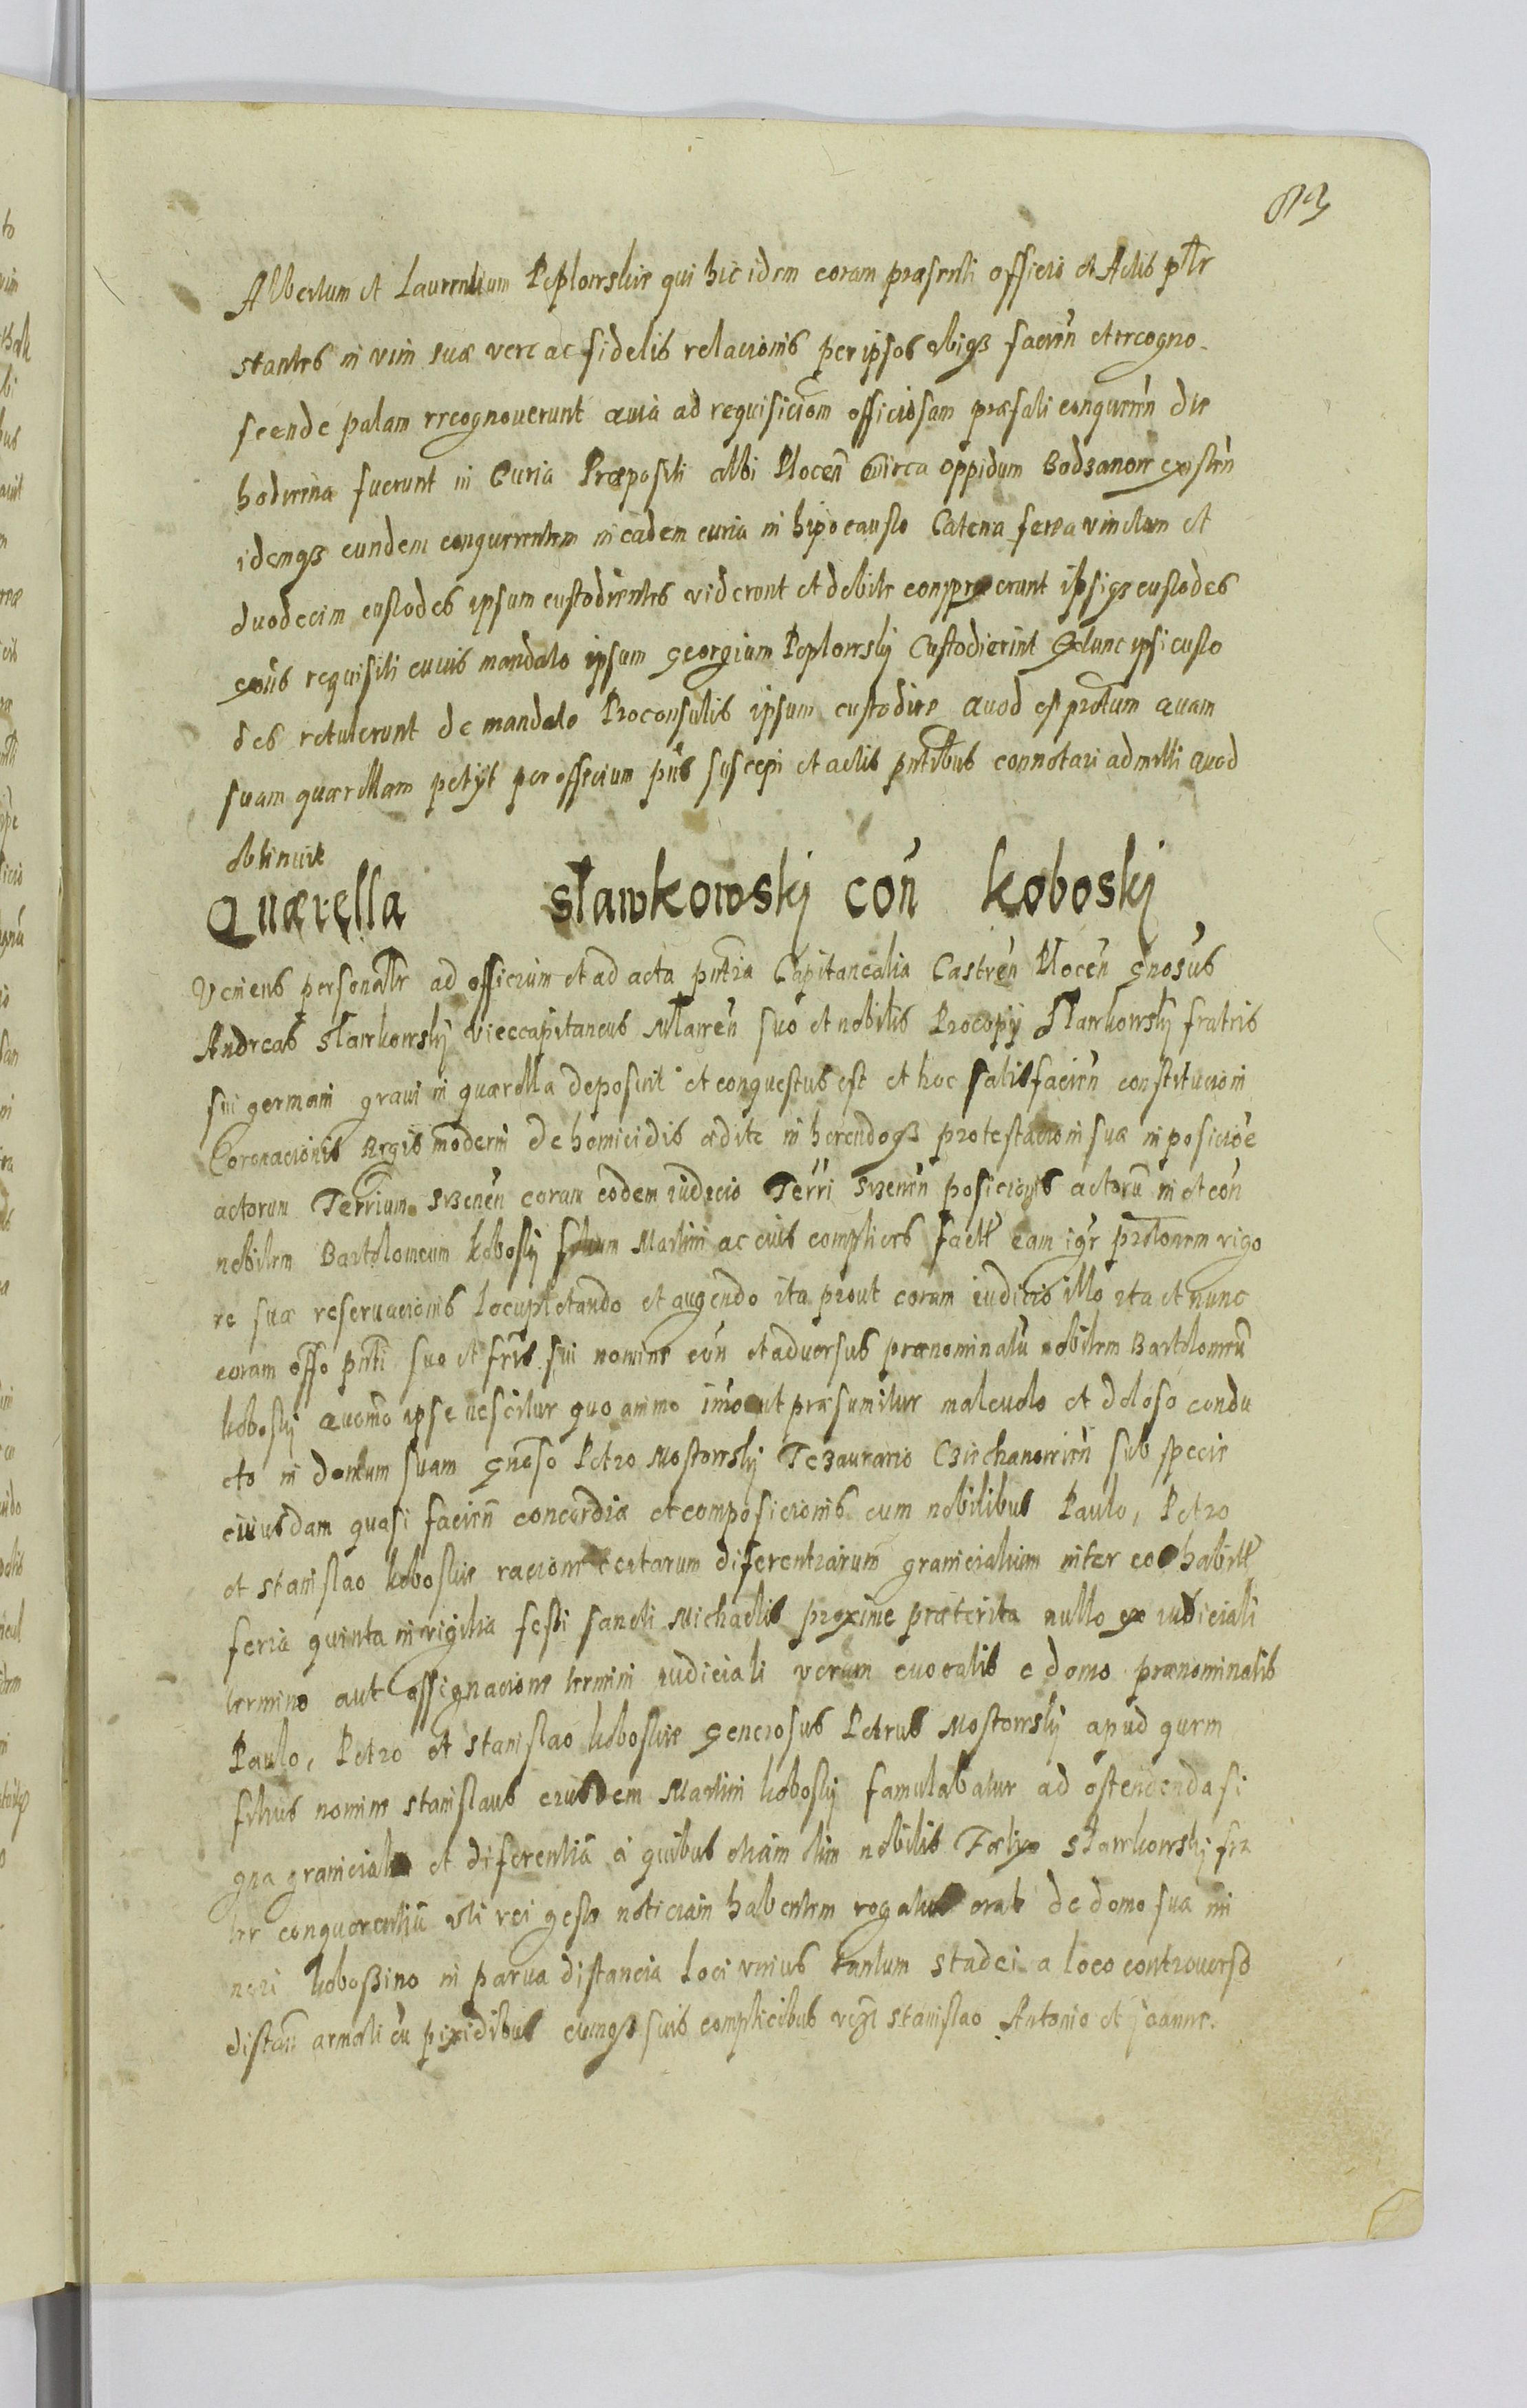 83
Albertum et Laurentium Peplowskie qui hic idem coram præsenti officio et Actis pñtr
stantes in vim suæ veræ ac fidelis relacionis per ipsos ibiqз facien̄ et recogno-
scende palam recognoverunt quià ad requisiciom̄ officiosam præfati conqueren̄ die
hodierna fuerunt in Curia Præpositi albi Plocen̄ circa oppidum Bodzanow existen̄
idemqз eundem conquerentem in eadem curia in hipocausto Catena ferrea vinctum et
duodecim custodes ipsum custodientes viderunt et debite conspexerunt ipsiqз custodes
exiis requisiti cuius mandato ipsum Georgium Peplowskÿ Custodierint Extunc ipsi custo
des retulerunt de mandato Proconsulis ipsum custodire Quod est protum Quam
suam quærellam petÿt per officium pñs suscepi et actis pntibus connotari admitti Quod
obtinuit
Quærella Sławkowskÿ con̄ Koboskÿ
Veniens personalr ad officium et ad acta pntia Capitanealia Castren̄ Plocen̄ Gnosus
Andreas Sławkowskÿ Vicecapitaneus Mławen̄ suo et nobilis Procopÿ Sławkowskÿ fratris
sui germani graui in quærella deposuit et conquestus est et hoc satisfacien̄ constitucioni
Coronacionis Regis moderni de homicidis ædite inherendoqз protestacioni suæ in posicioē
actorum Terrium Srzenen̄ coram eodem iudicio Terri Srzenen̄ posicionis actoru in et con̄
nobilem Bartolomeum Koboskÿ filium Martini ac eius complices factæ eam igr protonem rigo
re suæ reseruacionis Locupletando et augendo ita prout coram iudicio illo ita et nunc
coram offo pnti suo et fris sui nomine con̄ et aduersus prænominatu nobilem Bartolomeu
Koboskÿ Quomo ipse nescitur quo animo imo ut præsumitur maleuolo et doloso condu
cto in domum suam Gnoso Petro Mostowskÿ Tezaurario Cziechanowien̄ sub specie
cuiusdam quasi facien̄ concordiæ et composicionis cum nobilibus Paulo, Petro
et Stanislao Koboskie racione certarum diferentiarum granicialium inter eos habitæ
feria quinta in vigilia festi sancti Michaelis proxime præterita nullo ex iudiciali
termino aut assignacione termini iudiciali verum euocatis e domo prænominatis
Paulo, Petro et Stanislao Koboskie Generosus Petrus Mostowskÿ apud quem
filius nomine Stanislaus eiusdem Martini Koboskÿ famulabatur ad ostendenda si
gna granicialia et diferentia a quibus etiam olim nobilis Fælix Sławkowskÿ fra
ter conquerentiu uti rei gestæ noticiam habentem rogatus erat de domo sua mi
neri Koboßino in parua distancia Loci vnius tantum stadei a loco controuerso
distan̄ armati cu pixidibus cumqз suis complicibus vczl Stanislao Antonio et Joanne.